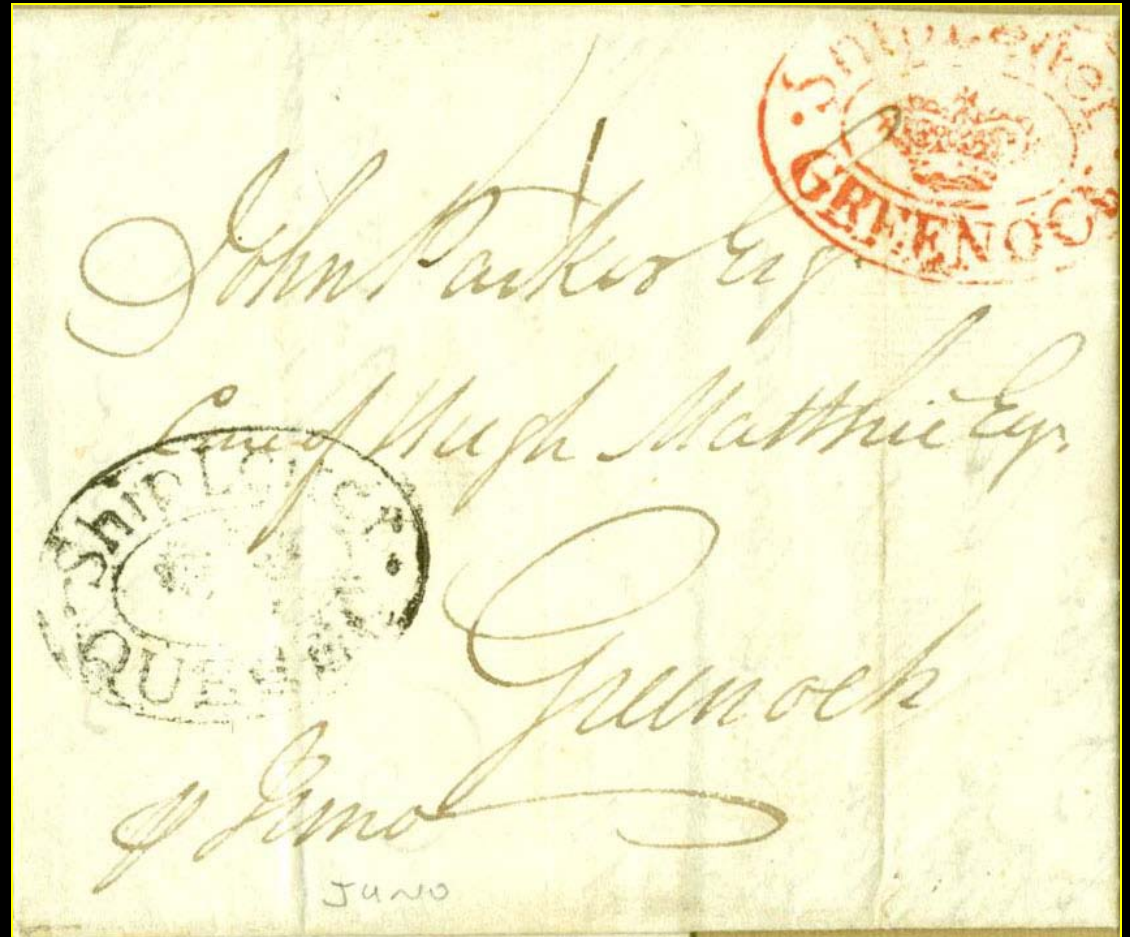 Ship Letter
GREENOCK
John Parker Esqr
Care of Hugh Matthie Esqr
Ship Letter
QUEBEC
Greenock
p Juno
JUNO